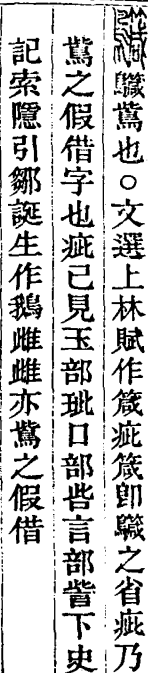 鴜也○文選上林賦作箴疵箴即之省疵乃
鴜之假借字也疵已見玉部玼口部呰言部訾下史
記索隱引鄒誕生作鵝雌雌亦鴜之假借